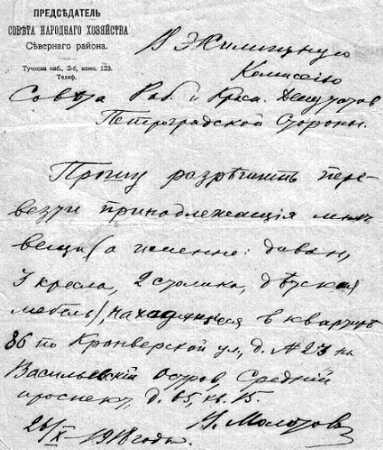 ПРЕДСѢДАТЕЛЬ
СОВѢТА НАРОДНАГО ХОЗЯЙСТВА
Сѣвернаго района.
Тучкова наб., 2-б, комн. 123.
Телеф.
В Жилищную
Комиссію
Совѣта Раб. и Красн. Депутатов
Петроградской Стороны.
Прошу разрѣшить пере-
везти принадлежащія мнѣ
вещи (а именно: диван,
3 кресла, 2 столика, дѣтская
мебель), находящіяся в квартирѣ
86 по Кронверкской ул., д. № 23 на
Васильевскій остров, Средній
проспект, д. 65, кв. 15.
В. Молотов
26/X - 1918 годы.